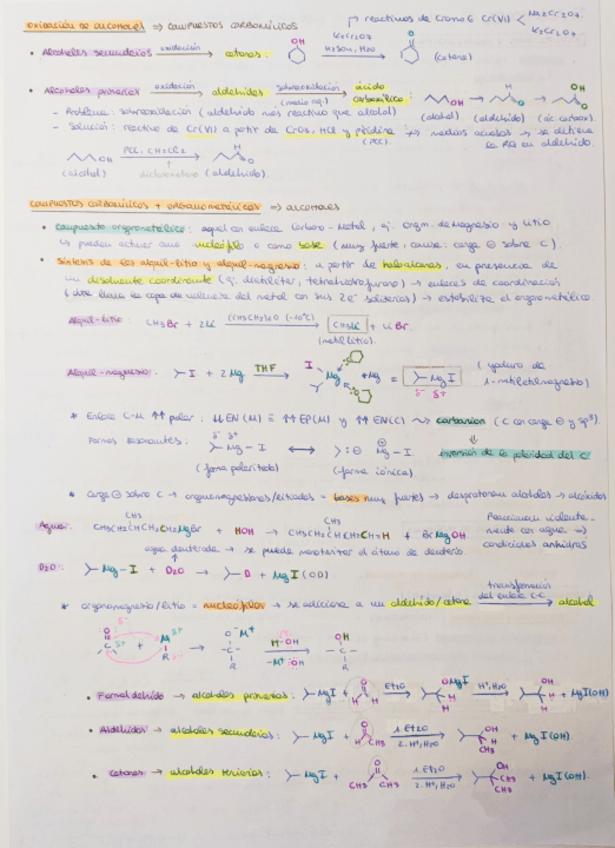 OXIDACIÓN DE ALCOHOLES ⇒ COMPUESTOS CARBONÍLICOS
reactivos de Cromo 6 Cr(VI) < Na2Cr2O7
K2Cr2O7
• Alcoholes secundarios oxidación → cetonas:
OH K2Cr2O7 H2SO4, H2O → O (cetona)
• Alcoholes primarios oxidación → aldehídos sobreoxidación (medio aq.) → ácido carboxílico:
OH → H O → OH O
(alcohol) (aldehído) (ác carbox).
- Problema: sobreoxidación (aldehído más reactivo que alcohol)
- Solución: reactivo de Cr(VI) a partir de CrO3, HCl y piridina (PCC).
medios acuosos → se detiene la RQ en aldehído.
OH PCC, CH2Cl2 → H O
(alcohol) diclorometano (aldehído).
COMPUESTOS CARBONÍLICOS + ORGANOMETÁLICOS ⇒ ALCOHOLES
• Compuesto organometálico: aquel con enlace Carbono-Metal, ej. orgm. de Magnesio y Litio
↳ pueden actuar como nucleófilo o como base (muy fuerte, carga ⊖ sobre C).
• Síntesis de los alquil-litio y alquil-magnesio: a partir de haloalcanos, en presencia de
un disolvente coordinante (ej. dietiléter, tetrahidrofurano) → enlaces de coordinación
llena la capa de valencia del metal con sus 2e- solitarios) → estabiliza el organometálico.
Alquil-litio: CH3Br + 2Li (CH3CH2)2O (-10°C) → CH3Li + LiBr.
(metil litio).
Alquil-magnesio: I + 2Mg THF → I Mg + Mg = MgI
(yoduro de 1-metiletilmagnesio)
δ- δ+
* Enlace C-M ↑↑ polar: ↓↓ EN(M) ≡ ↑↑ EP(M) y ↑↑ EN(C) ⤳ carbanión (C con carga ⊖ y sp3)
Formas resonantes: δ- δ+ Mg-I ⟷ :⊖ ⊕ Mg-I.
inversión de la polaridad del C
(forma polarizada) (forma iónica).
• carga ⊖ sobre C → = bases muy fuertes → desprotonan alcoholes → alcóxidos
Agua: CH3 CH3CH2CHCH2CH2MgBr + HOH → CH3 CH3CH2CHCH2CH2-H + BrMgOH
Reaccionan violentamente con agua ⇒ condiciones anhidras
agua deuterada → se puede el átomo de deuterio.
D2O: Mg-I + D2O → D + MgI(OD)
* organomagnesio/litio = nucleófilos → se adiciona a un aldehído/cetona transformación del enlace C-C → alcohol
O δ- C δ+ + M δ+ R δ- → O- M+ -C- R H-OH -M+ :OH → OH -C- R
• Formaldehído → alcoholes primarios: MgI + O H H Et2O → OMgI H H H+, H2O → OH H H + MgI(OH)
• Aldehídos → alcoholes secundarios: MgI + O H CH3 1. Et2O 2. H+, H2O → OH H CH3 + MgI(OH).
• Cetonas → alcoholes terciarios: MgI + O CH3 CH3 1. Et2O 2. H+, H2O → OH CH3 CH3 + MgI(OH).